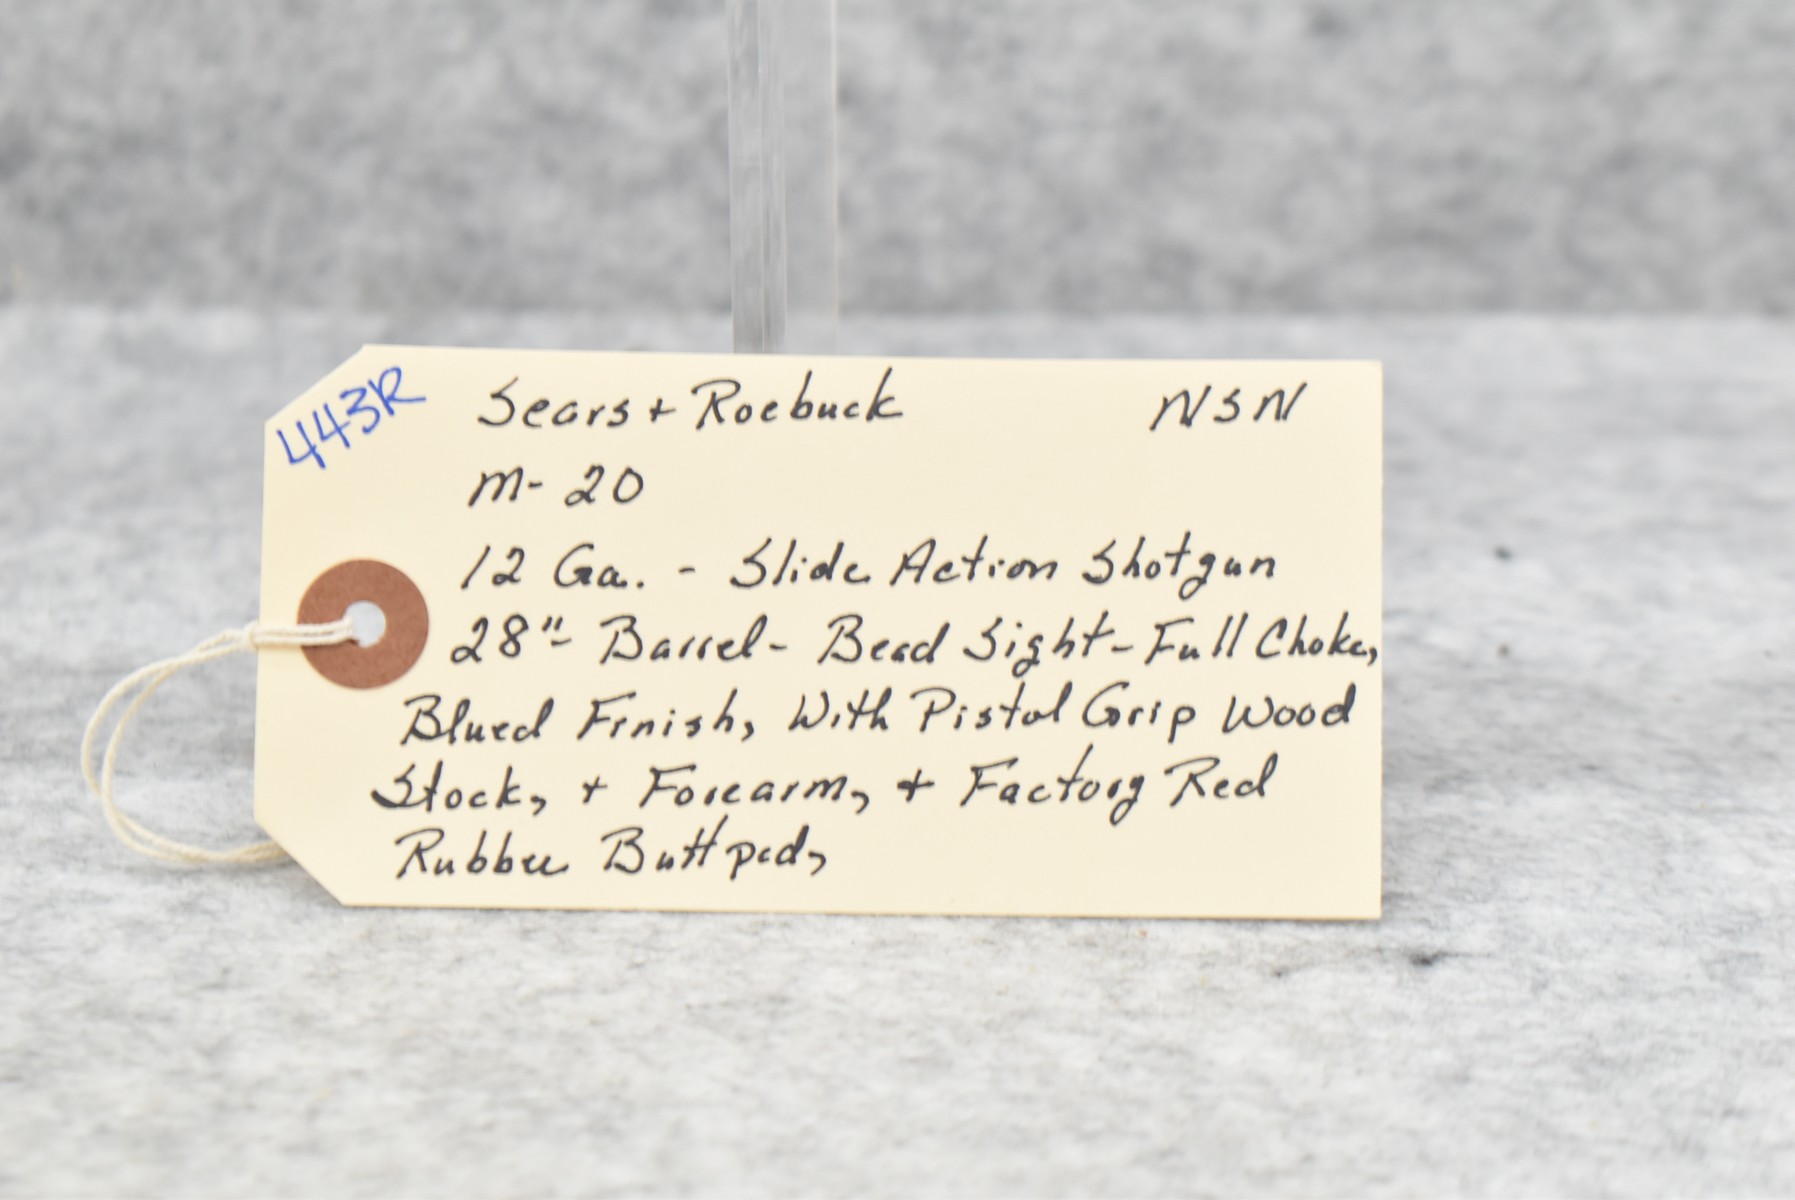 443R
Sears + Roebuck NSN
M- 20
12 Ga. - Slide Action Shotgun
28"- Barrel- Bead Sight- Full Choke,
Blued Finish, With Pistol Grip Wood
Stock, + Forearm, + Factory Red
Rubber Buttpad,